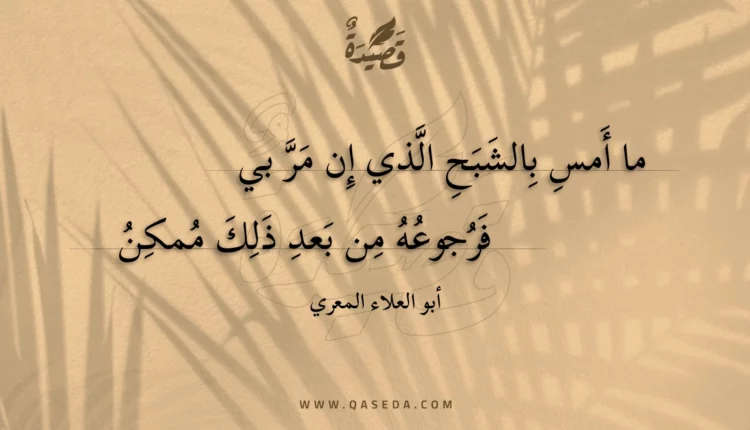 قَصِيْدَةٌ
ما أَمسِ بِالشَبَحِ الَّذي إِن مَرَّ بي
فَرُجوعُهُ مِن بَعدِ ذَلِكَ مُمكِنُ
أبو العلاء المعري
WWW.QASEDA.COM